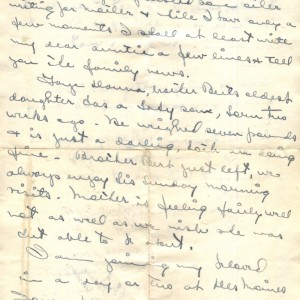 writing for mother & while I have only a
few moments I shall at least write
my dear auntie a few lines & tell
you the family news.
daughter has a baby son, born two
weeks ago. He weighed seven pounds
& is just a darling, both are doing
fine - Brother Bert just left, we
always enjoy his Sunday morning
visits. Mother is feeling fairly well
not as well as we wish she was
but able to be about.
I am joining my
in a day or two at Des Moines